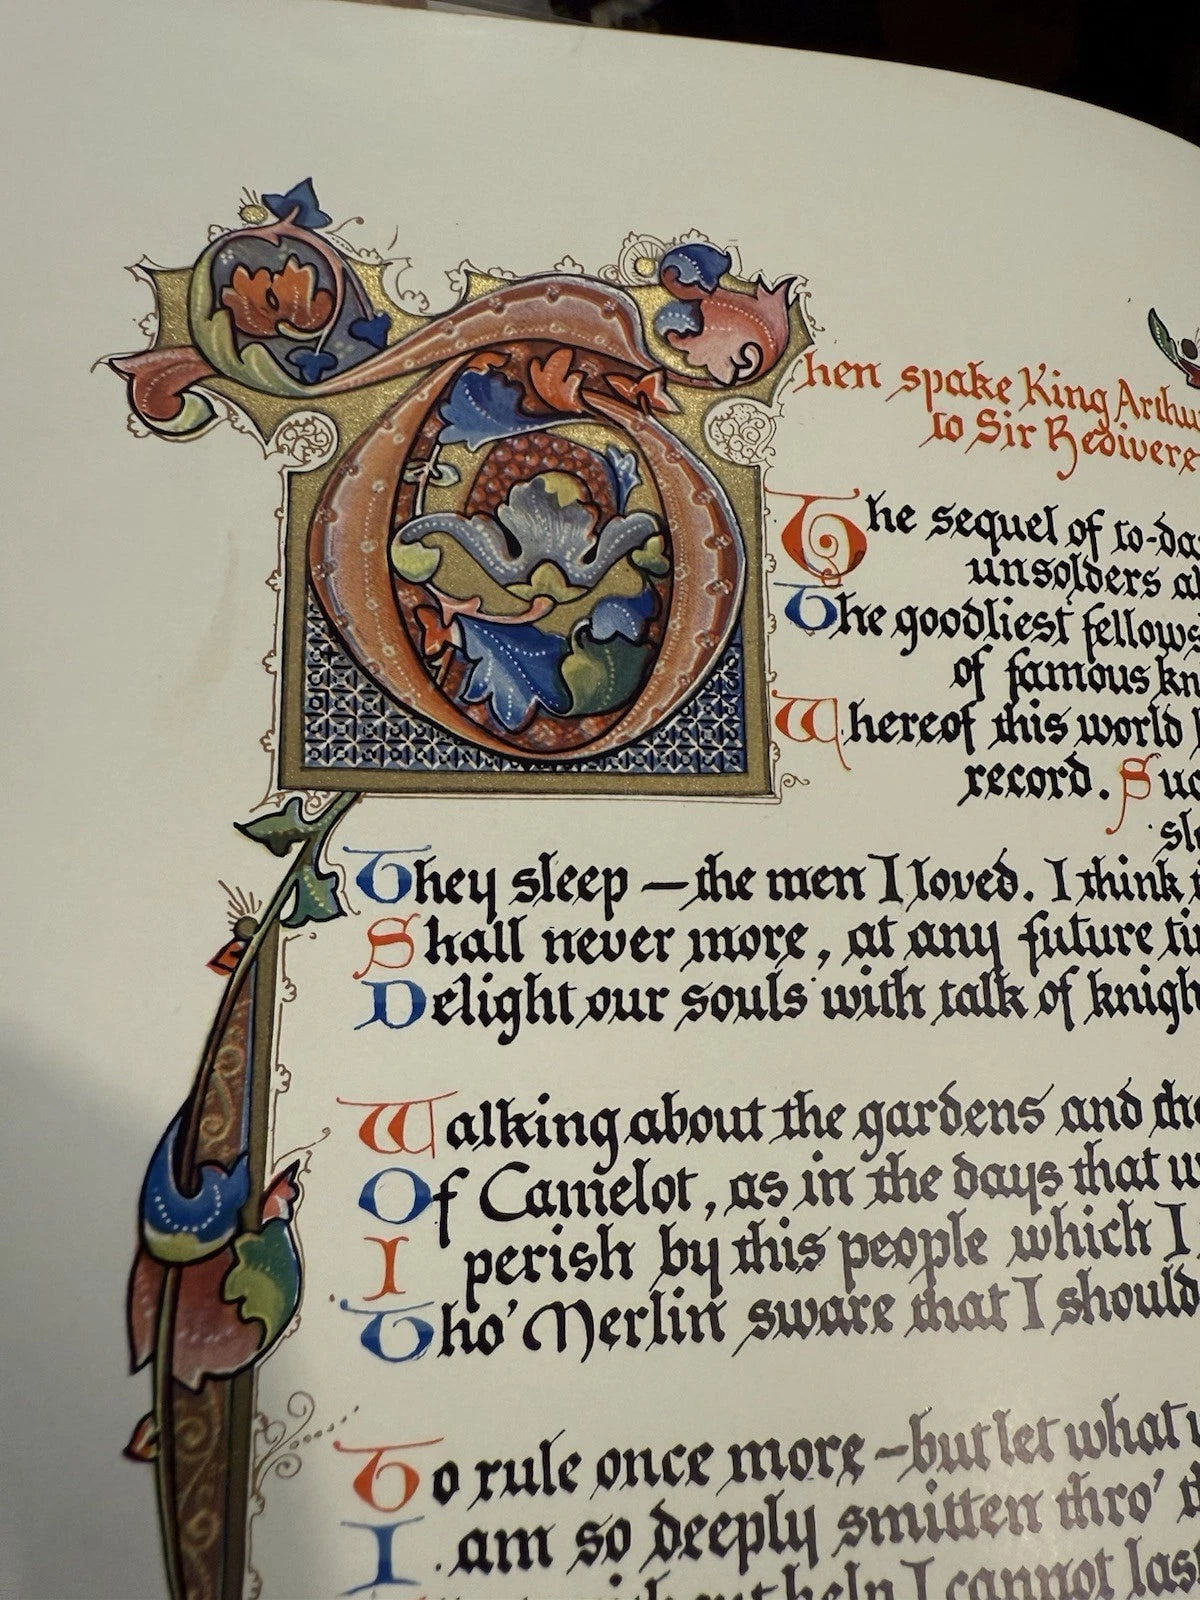 Then spake King Arthu
to Sir Bedivere
The sequel of to-da
unsolders al
The goodliest fellows
of famous kn
Whereof this world h
record. Suc
sle
They sleep — the men I loved. I think t
Shall never more, at any future ti
Delight our souls with talk of knigh
Walking about the gardens and the
Of Camelot, as in the days that w
I perish by this people which I
Tho' Merlin sware that I should
To rule once more — but let what
I am so deeply smitten thro' th
without help I cannot las